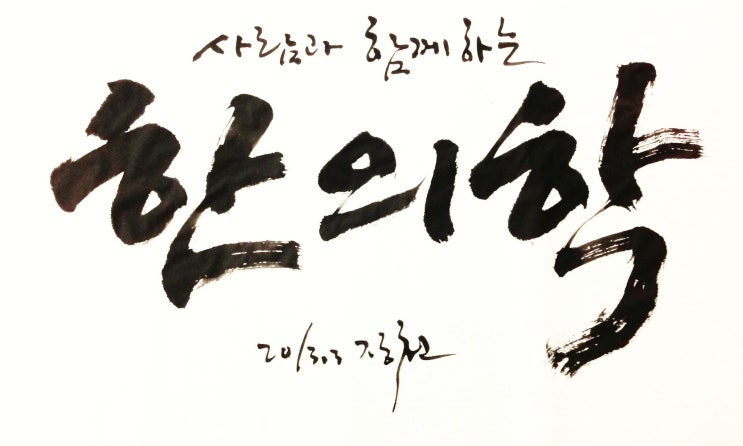 사람과 함께하는
한의학
2013.3